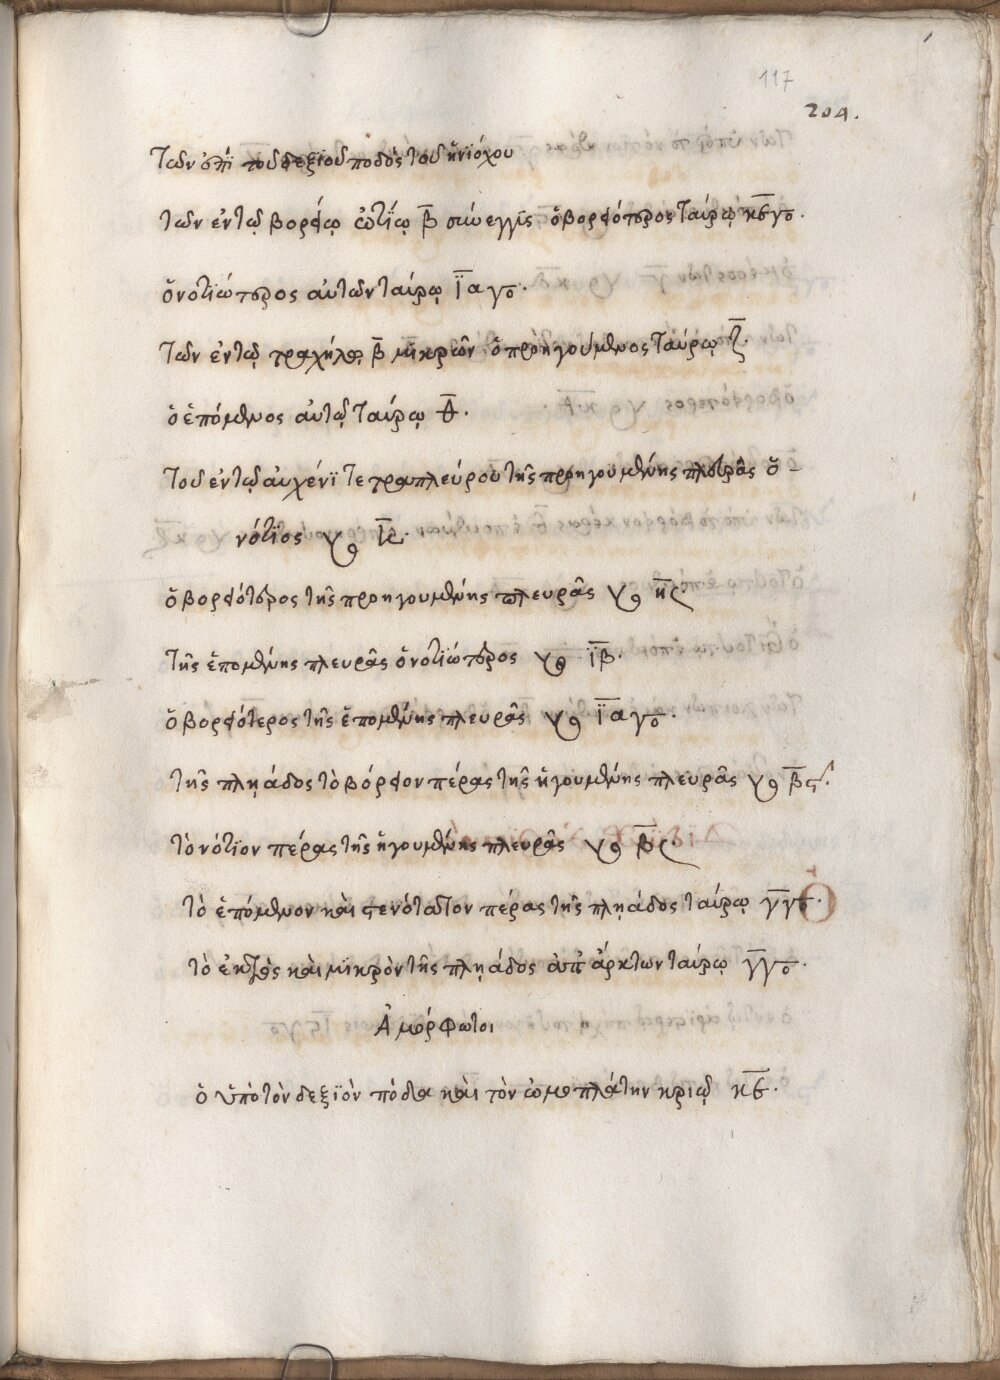 117
204.
Των ἐπὶ τοῦ δεξϊοῦ ποδὸς τοῦ ἡνϊόχου
των ἐν τῷ βορείῳ ὠτίῳ β̅ σύνεγγϊς ὁ βορειότερος Ταύρῳ κ̅ε̅ γο.
ὁ νοτϊώτερος αὐτῶν ταύρῳ ι̅α̅ γο.
Των ἐν τῷ τραχήλῳ β̅ μϊκρῶν ὁ προηγούμενος Ταύρῳ ζ̅.
ὁ ἑπόμενος αὐτῷ Ταύρῳ θ̅.
Τοῦ ἐν τῷ αὐχένϊ τετραπλεύρου τῆς προηγουμένης πλευρᾶς ὁ -
νότϊος ♉
ὁ βορειότερος τῆς προηγουμένης πλευρᾶς ♉
τῆς ἑπομένης πλευρᾶς ὁ νοτϊώτερος ♉ ι̅β̅.
ὁ βορειότερος τῆς ἑπομένης πλευρᾶς ♉ ι̅α̅ γο.
τῆς πλῃάδος τὸ βόρειον πέρας τῆς ἡγουμένης πλευρᾶς ♉ β̅ς.
τὸ νότϊον πέρας τῆς ἡγουμένης πλευρᾶς ♉ β̅ς.
τὸ ἑπόμενον καὶ στενότατον πέρας τῆς πλῃάδος ταύρῳ γ̅ γο.
τὸ ἐκτὸς καὶ μϊκρὸν τῆς πλῃάδος ἀπ' ἄρκτων ταύρῳ γ̅ γο.
Ἀμόρφωτοι
ὁ ὑπὸ τὸν δεξϊὸν πόδα καὶ τὸν ὠμοπλάτην κριῷ κ̅ε̅.